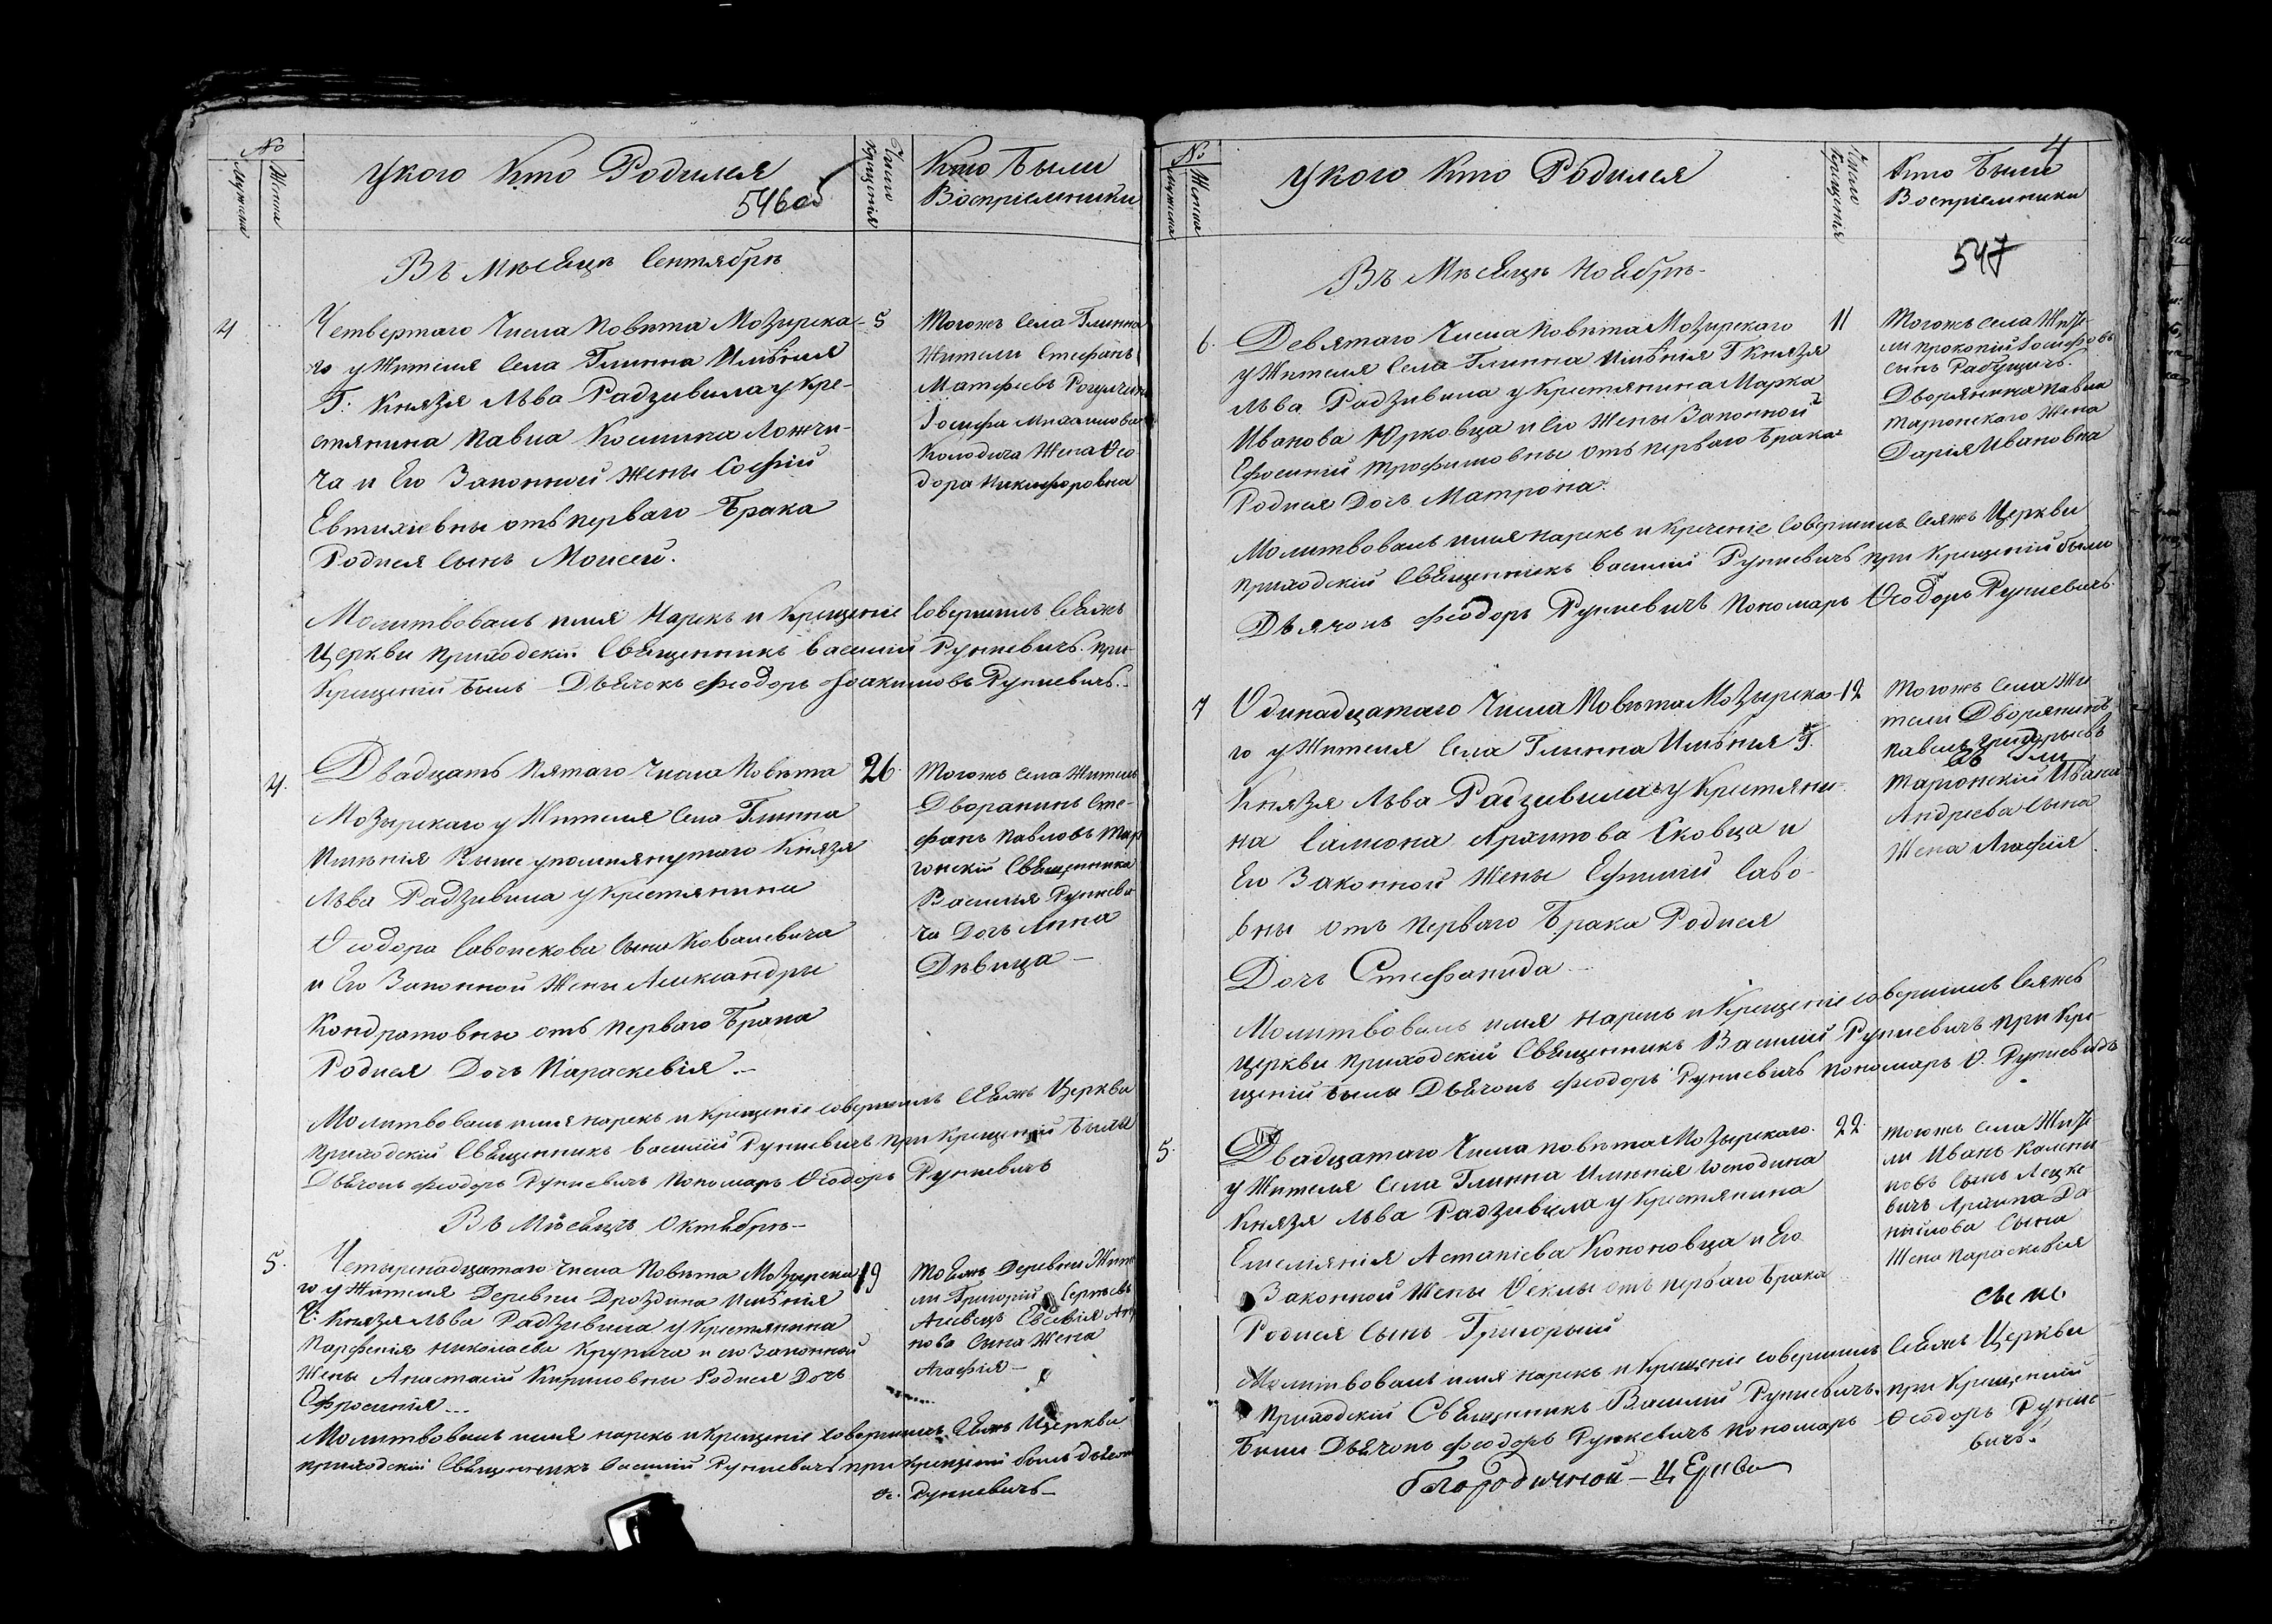 №
Мужеска
Женска
У кого Кто Родился
546об
Число Крещенія
Кто Были
Воспріемники
Въ Мѣсяцѣ Сентябрѣ
4
Четвертаго Числа Повѣта Мозырска-
го у Жителя Села Глинна Имѣнія
Г: Князя Льва Радзивила у Кре-
стянина Павла Ложчи-
ча и Его Законной Жены Софіи
Евтихіевны отъ перваго Брака
Родился Сынъ Моисей.
5
Тогожъ Села Глинна
Жители Стефанъ
Матфеевъ
Іосифа Михаилова
Колодича Жена Ѳео
дора Никифоровна
Молитвовалъ имя Нарекъ и Крещеніе Совершилъ Сеяжъ
Церкви приходскій Священникъ Василій Рункевичъ. при
Крещеніи Былъ - Дьячокъ Феодоръ Іоакимовъ Рункевичъ.
4.
Двадцать Пятаго Числа Повѣта
Мозырскаго у Жителя Села Глинна
Имѣнія Выше упомянутаго Князя
Льва Радзивила у Крестянина
Ѳеодора Сына Ковалевича
и Его Законной Жены Александры
Кондратовны отъ перваго Брака
Родися Дочь Параскевія.
26.
Тогожъ Села Жители
Дворянинъ Сте-
фанъ Павловъ Тар
гонскій Священника
Василія Рункеви
ча Дочь Анна
Дѣвица -
Молитвовалъ имя нарекъ и крещеніе совершилъ Сеяжъ Церкви
приходскій Священникъ Василій Рункевичъ при Крещеніи Были
Дьячокъ Феодоръ Рункевичъ Пономарь Ѳеодоръ Рункевичъ
Въ Мѣсяцѣ Октябрѣ -
5.
Четырнадцатаго Числа Повѣта Мозырска
го у Жителя Деревни Дроздина Имѣнія
Г: Князя Льва Радзивила у Крестянина
Парфенія Николаева Крупича и его Законной
Жены Анастасіи Кириловны Родися Дочь
Ефросинія
19
Тояжъ Деревни Жите
ли Григорій Сергѣевъ
Евсевія
пова Сына Жена
Агафія -
Молитвовалъ имя нарекъ и Крещеніе совершилъ Сеяжъ Церкви
приходскій Священникъ Василій Рункевичъ при Крещеніи былъ Дьячокъ
Ѳ. Рункевичъ -
№
Мужеска
Женска
У кого Кто Родился
Число Крещенія
Кто Были
Воспріемники
4
547
Въ Мѣсяцѣ Ноябрѣ -
6.
Девятаго Числа Повѣта Мозырскаго
у Жителя Села Глинна Имѣнія Г Князя
Льва Радзивила у Крестянина Марка
Иванова Юрковца и Его Жены Законной
Ефросиніи Трофимовны отъ перваго Брака
Родися Дочь Матрона.
11
Тогожъ Села Жите-
ли Прокопій Іосифовъ
сынъ
Дворянина Павла
Таргонскаго Жена
Дарія Ивановна
Молитвовалъ имя нарекъ и Креченіе Совершилъ Сеяжъ Церкви
приходскій Священникъ Василій Рункевичъ при Крещеніи были
Дьячокъ Феодоръ Рункевичъ Пономарь Ѳеодоръ Рункевичъ
7
Одинадцатаго Числа Повѣта Мозырска-
го у Жителя Села Глинна Имѣнія Г.
Князя Льва Радзивила у Крестяни-
на Самсона Архипова и
Его Законной Жены Ефиміи Саво-
вны отъ перваго Брака Родися
Дочь Стефанида -
12
Тогожъ Села Жи
тели Дворянинъ
Павелъ Григорьевъ
Таргонскій Ивана
Андреева Сына
Жена Агафія.
Молитвовалъ имя нарекъ и Крещеніе совершилъ Сеяжъ
Церкви Приходскій Священникъ Василій Рункевичъ при Кре-
щеніи были Дьячокъ Феодоръ Рункевичъ Пономарь Ѳ. Рункевичъ
5.
Двадцатаго Числа Повѣта Мозырскаго
у Жителя Села Глинна Имѣнія Господина
Князя Льва Радзивила у Крестянина
Емеліянія Астапіева Кононовца и Его
Законной Жены Ѳеклы отъ перваго Брака
Родися Сынъ Григорый
22.
Тогожъ Села Жите
ли Иванъ
новъ Сынъ Лецке
вичъ Архипа Да
нилова Сына
Жена Параскевія
Молитвовалъ имя нарекъ и Крещеніе совершилъ Сеяжъ Церкви
Приходскій Священникъ Василій Рункевичъ. при Крещеніи
Были Дьячокъ Феодоръ Рункевичъ Пономарь Ѳеодоръ Рунке-
вичъ.